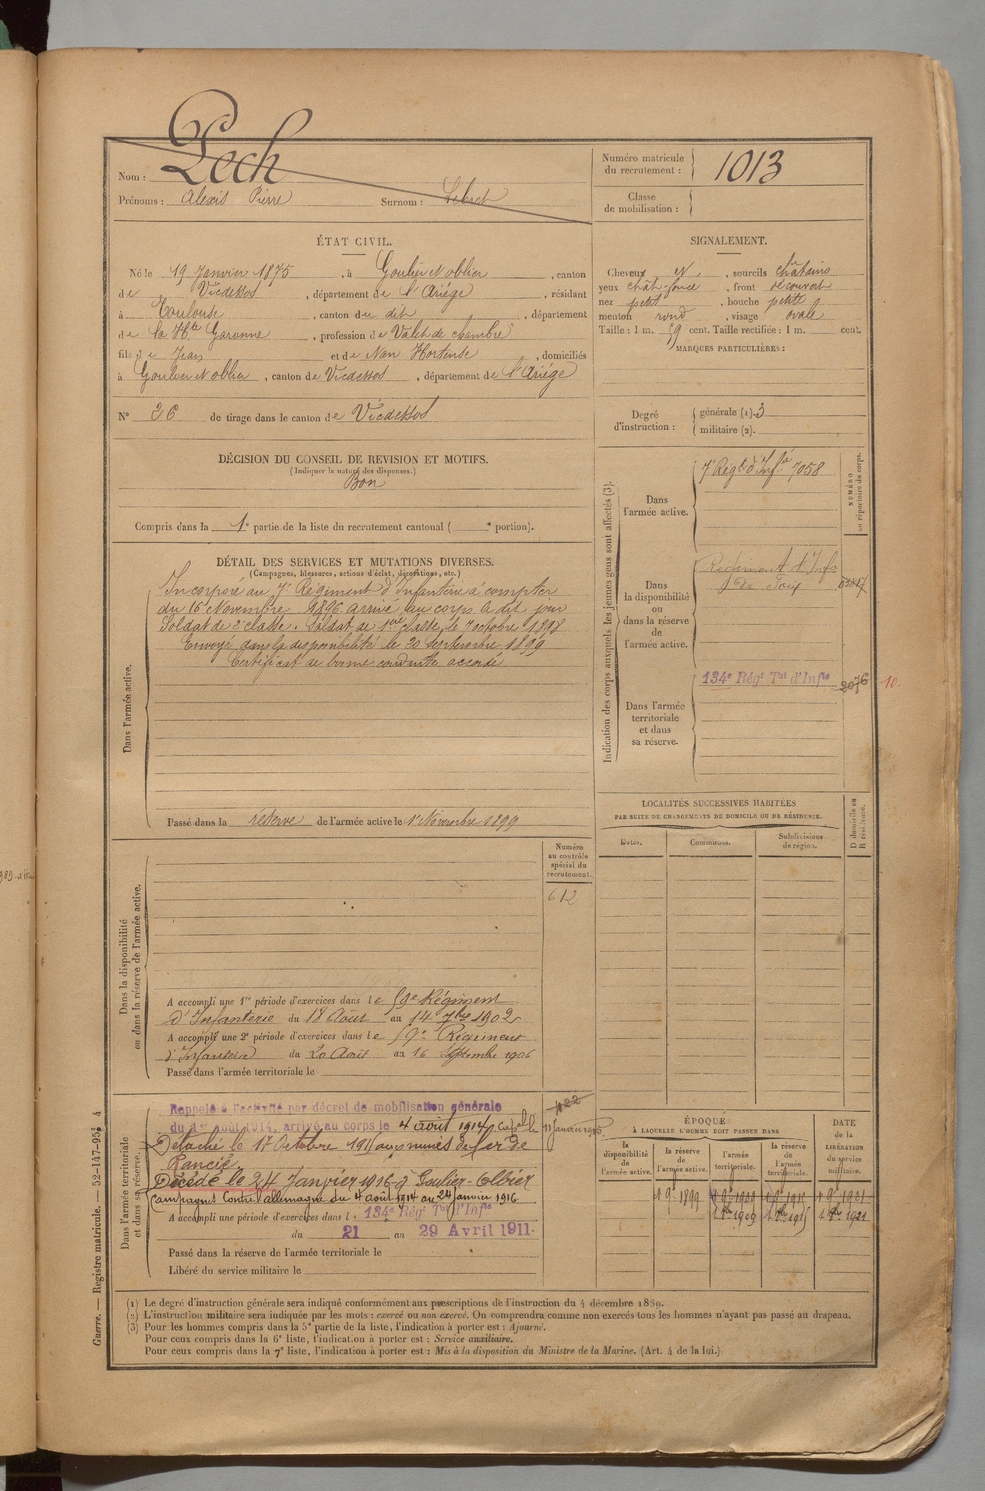 Nom : Pech
Prénoms : Alexis Pierre Surnom :
Numéro matricule du recrutement : 1013
Classe de mobilisation :
ÉTAT CIVIL.
Né le 19 Janvier 1875, à Goulier et Olbier, canton
de Vicdessos, département de l'Ariége, résidant
à Toulouse, canton du dit, département
de la Hte Garonne, profession de Valet de chambre
fils de Jean et de Nan Hortense, domiciliés
à Goulier et Olbier, canton de Vicdessos, département de l'Ariége
N° 26 de tirage dans le canton de Vicdessos
SIGNALEMENT.
Cheveux N, sourcils châtains
yeux chât. foncé, front découvert
nez petit, bouche petite
menton rond, visage ovale
Taille : 1 m. 59 cent. Taille rectifiée : 1 m. cent.
MARQUES PARTICULIÈRES :
Degré d'instruction : générale (1). 3
militaire (2).
DÉCISION DU CONSEIL DE REVISION ET MOTIFS.
(Indiquer la nature des dispenses.)
Bon
Compris dans la 1e partie de la liste du recrutement cantonal ( e portion).
DÉTAIL DES SERVICES ET MUTATIONS DIVERSES.
(Campagnes, blessures, actions d'éclat, décorations, etc.)
Dans l'armée active.
Incorporé au 7e Régiment d'Infanterie à compter
du 16 Novembre 1896 arrivé au corps le dit jour
Soldat de 2e classe. Soldat de 1ère classe le 7 octobre 1898
Envoyé dans la disponibilité le 20 Septembre 1899
Certificat de bonne conduite accordé
Passé dans la réserve de l'armée active le 1er Novembre 1899
Indication des corps auxquels les jeunes gens sont affectés (3).
NUMÉRO au répertoire du corps.
Dans l'armée active.
7e Régt d'Infie 7058
Dans la disponibilité ou dans la réserve de l'armée active.
Régiment d'Infie
de Foix
Dans l'armée territoriale et dans sa réserve.
134e Régt Tal d'Infie 2076
10.
LOCALITÉS SUCCESSIVES HABITÉES
PAR SUITE DE CHANGEMENTS DE DOMICILE OU DE RÉSIDENCE.
Dates. Communes. Subdivisions de région. D domicile ou R résidence.
Dans la disponibilité ou dans la réserve de l'armée active.
Numéro au contrôle spécial du recrutement.
612
A accompli une 1re période d'exercices dans le 59e Régiment
d'Infanterie du 18 Août au 14 7bre 1902
A accompli une 2e période d'exercices dans le 59e Régiment
d'Infanterie du 20 Août au 16 Septembre 1906
Passé dans l'armée territoriale le
Dans l'armée territoriale et dans sa réserve.
Rappelé à l'activité par décret de mobilisation générale
du 1er août 1914, arrivé au corps le 4 août 1914
Détaché le 17 Octobre 1915 aux mines de fer de
Rancié
Décédé le 24 Janvier 1916 à Goulier-Olbier
Campagnes Contre l'allemagne du 4 août 1914 au 24 janvier 1916
A accompli une période d'exercices dans l. 134e Régt Tal d'Infie
du 21 au 29 Avril 1911
Passé dans la réserve de l'armée territoriale le
Libéré du service militaire le
ÉPOQUE
À LAQUELLE L'HOMME DOIT PASSER DANS
la disponibilité de l'armée active. la réserve de l'armée active. l'armée territoriale. la réserve de l'armée territoriale.
DATE de la LIBÉRATION du service militaire.
1 9e 1899
Guerre. — Registre matricule. — 52-147-95
(1) Le degré d'instruction générale sera indiqué conformément aux prescriptions de l'instruction du 4 décembre 1889.
(2) L'instruction militaire sera indiquée par les mots : exercé ou non exercé. On comprendra comme non exercés tous les hommes n'ayant pas passé au drapeau.
(3) Pour les hommes compris dans la 5e partie de la liste, l'indication à porter est : Ajourné.
Pour ceux compris dans la 6e liste, l'indication à porter est : Service auxiliaire.
Pour ceux compris dans la 7e liste, l'indication à porter est : Mis à la disposition du Ministre de la Marine. (Art. 4 de la loi.)